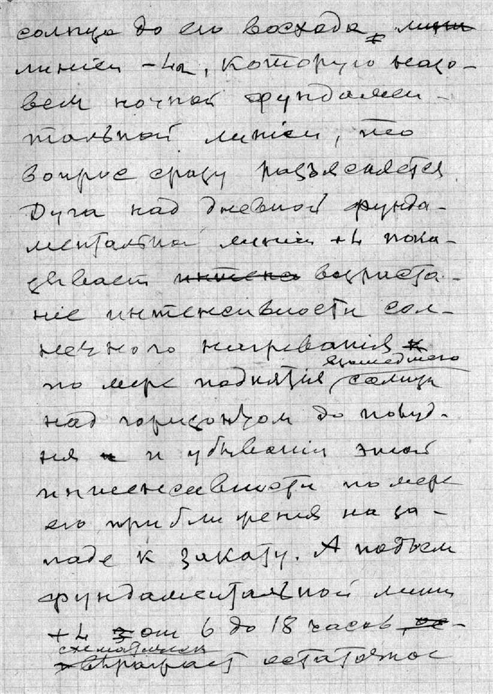 солнца до его восхода, лини
линіей -4а, которую назо-
вем ночной фундамен-
тальной линіей, то
вопрос сразу разъясняется.
Дуга над дневной фунда-
ментальной линіей +4 пока-
зывает интенс возраста-
ніе интенсивности сол-
нечного нагреванія
взошедшего
по мере поднятія солнца
над горизонтом до полуд-
ня и убыванія этой
интенсивности по мере
его приближения на за-
паде к закату. А подъем
фундаментальной линіи
+4 от 6 до 18 часов
схематически
выражает остаточное